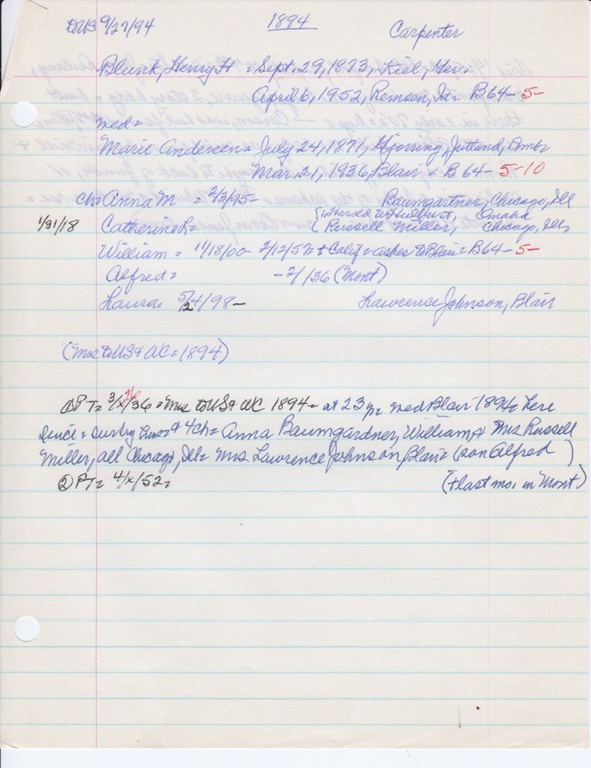 9/27/94 1894 Carpenter
Blunk, Henry H = Sept. 29, 1873, Kiel, Ger.
April 6, 1952, Remsen, Ia = B64-5-
med =
Marie Andersen = July 24, 1871, Hjorring, Jutland, Dmk
Mar. 21, 1936, Blair = B64-5-10
ch = Anna M = 2/3/95- Baumgartner, Chicago, Ill
1/31/18 Catherine L = Harold W Hulbert, Omaha
Russell Miller, Chicago, Ill,
William = 11/18/00- 2/12/57 Calif = ashes to Blair = B64-5-
Alfred = -2/36 (Mont)
Laura = 5/24/98- Lawrence Johnson, Blair
(Mrs to US & WC = 1894)
① PT = 3/26/36 = Mrs to US & WC 1894 = at 23 yr = med Blair 1894 = here
since = surby & 4 ch = Anna Baumgardner, William & Mrs Russell
Miller, all Chicago, Ill = Mrs Lawrence Johnson, Blair = (son Alfred )
② PT = 4/x/52 = († last mo. in Mont)